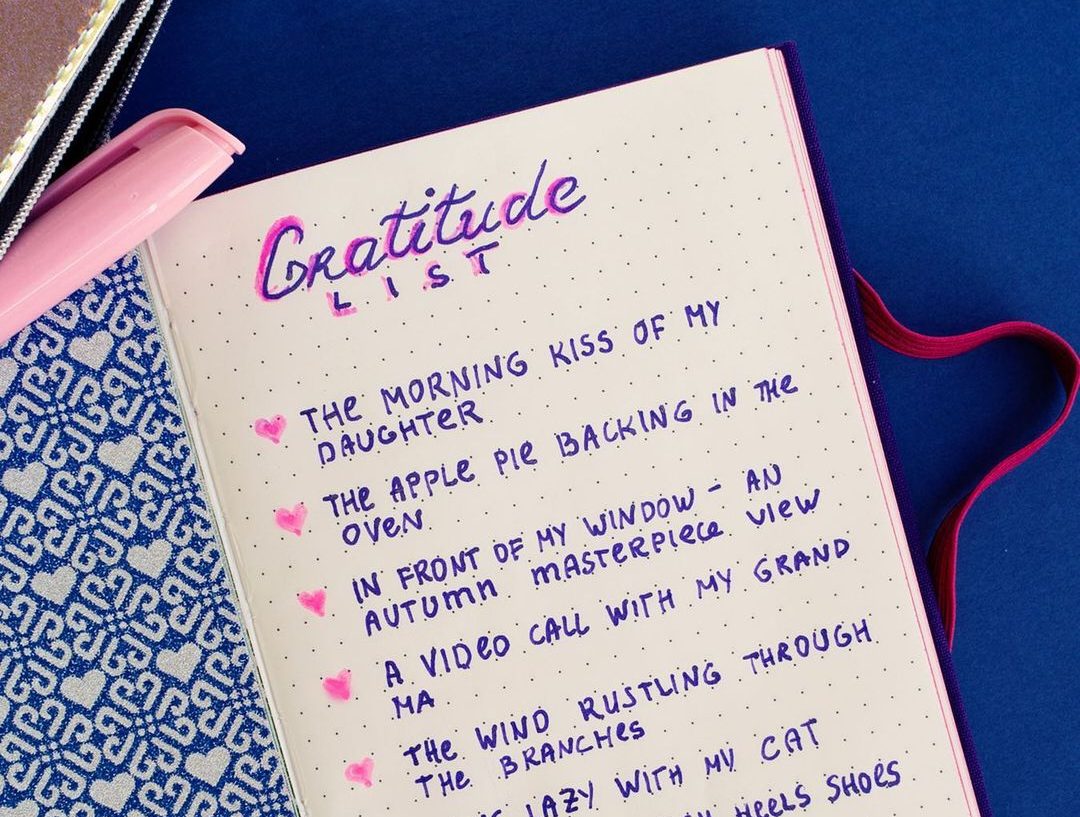 Gratitude
LIST
THE MORNING KISS OF MY
DAUGHTER
THE APPLE PIE BACKING IN THE
OVEN
IN FRONT OF MY WINDOW - AN
AUTUMN MASTERPIECE VIEW
A VIDEO CALL WITH MY GRAND
MA
THE WIND RUSTLING THROUGH
THE BRANCHES
LAZY WITH MY CAT
HEELS SHOES